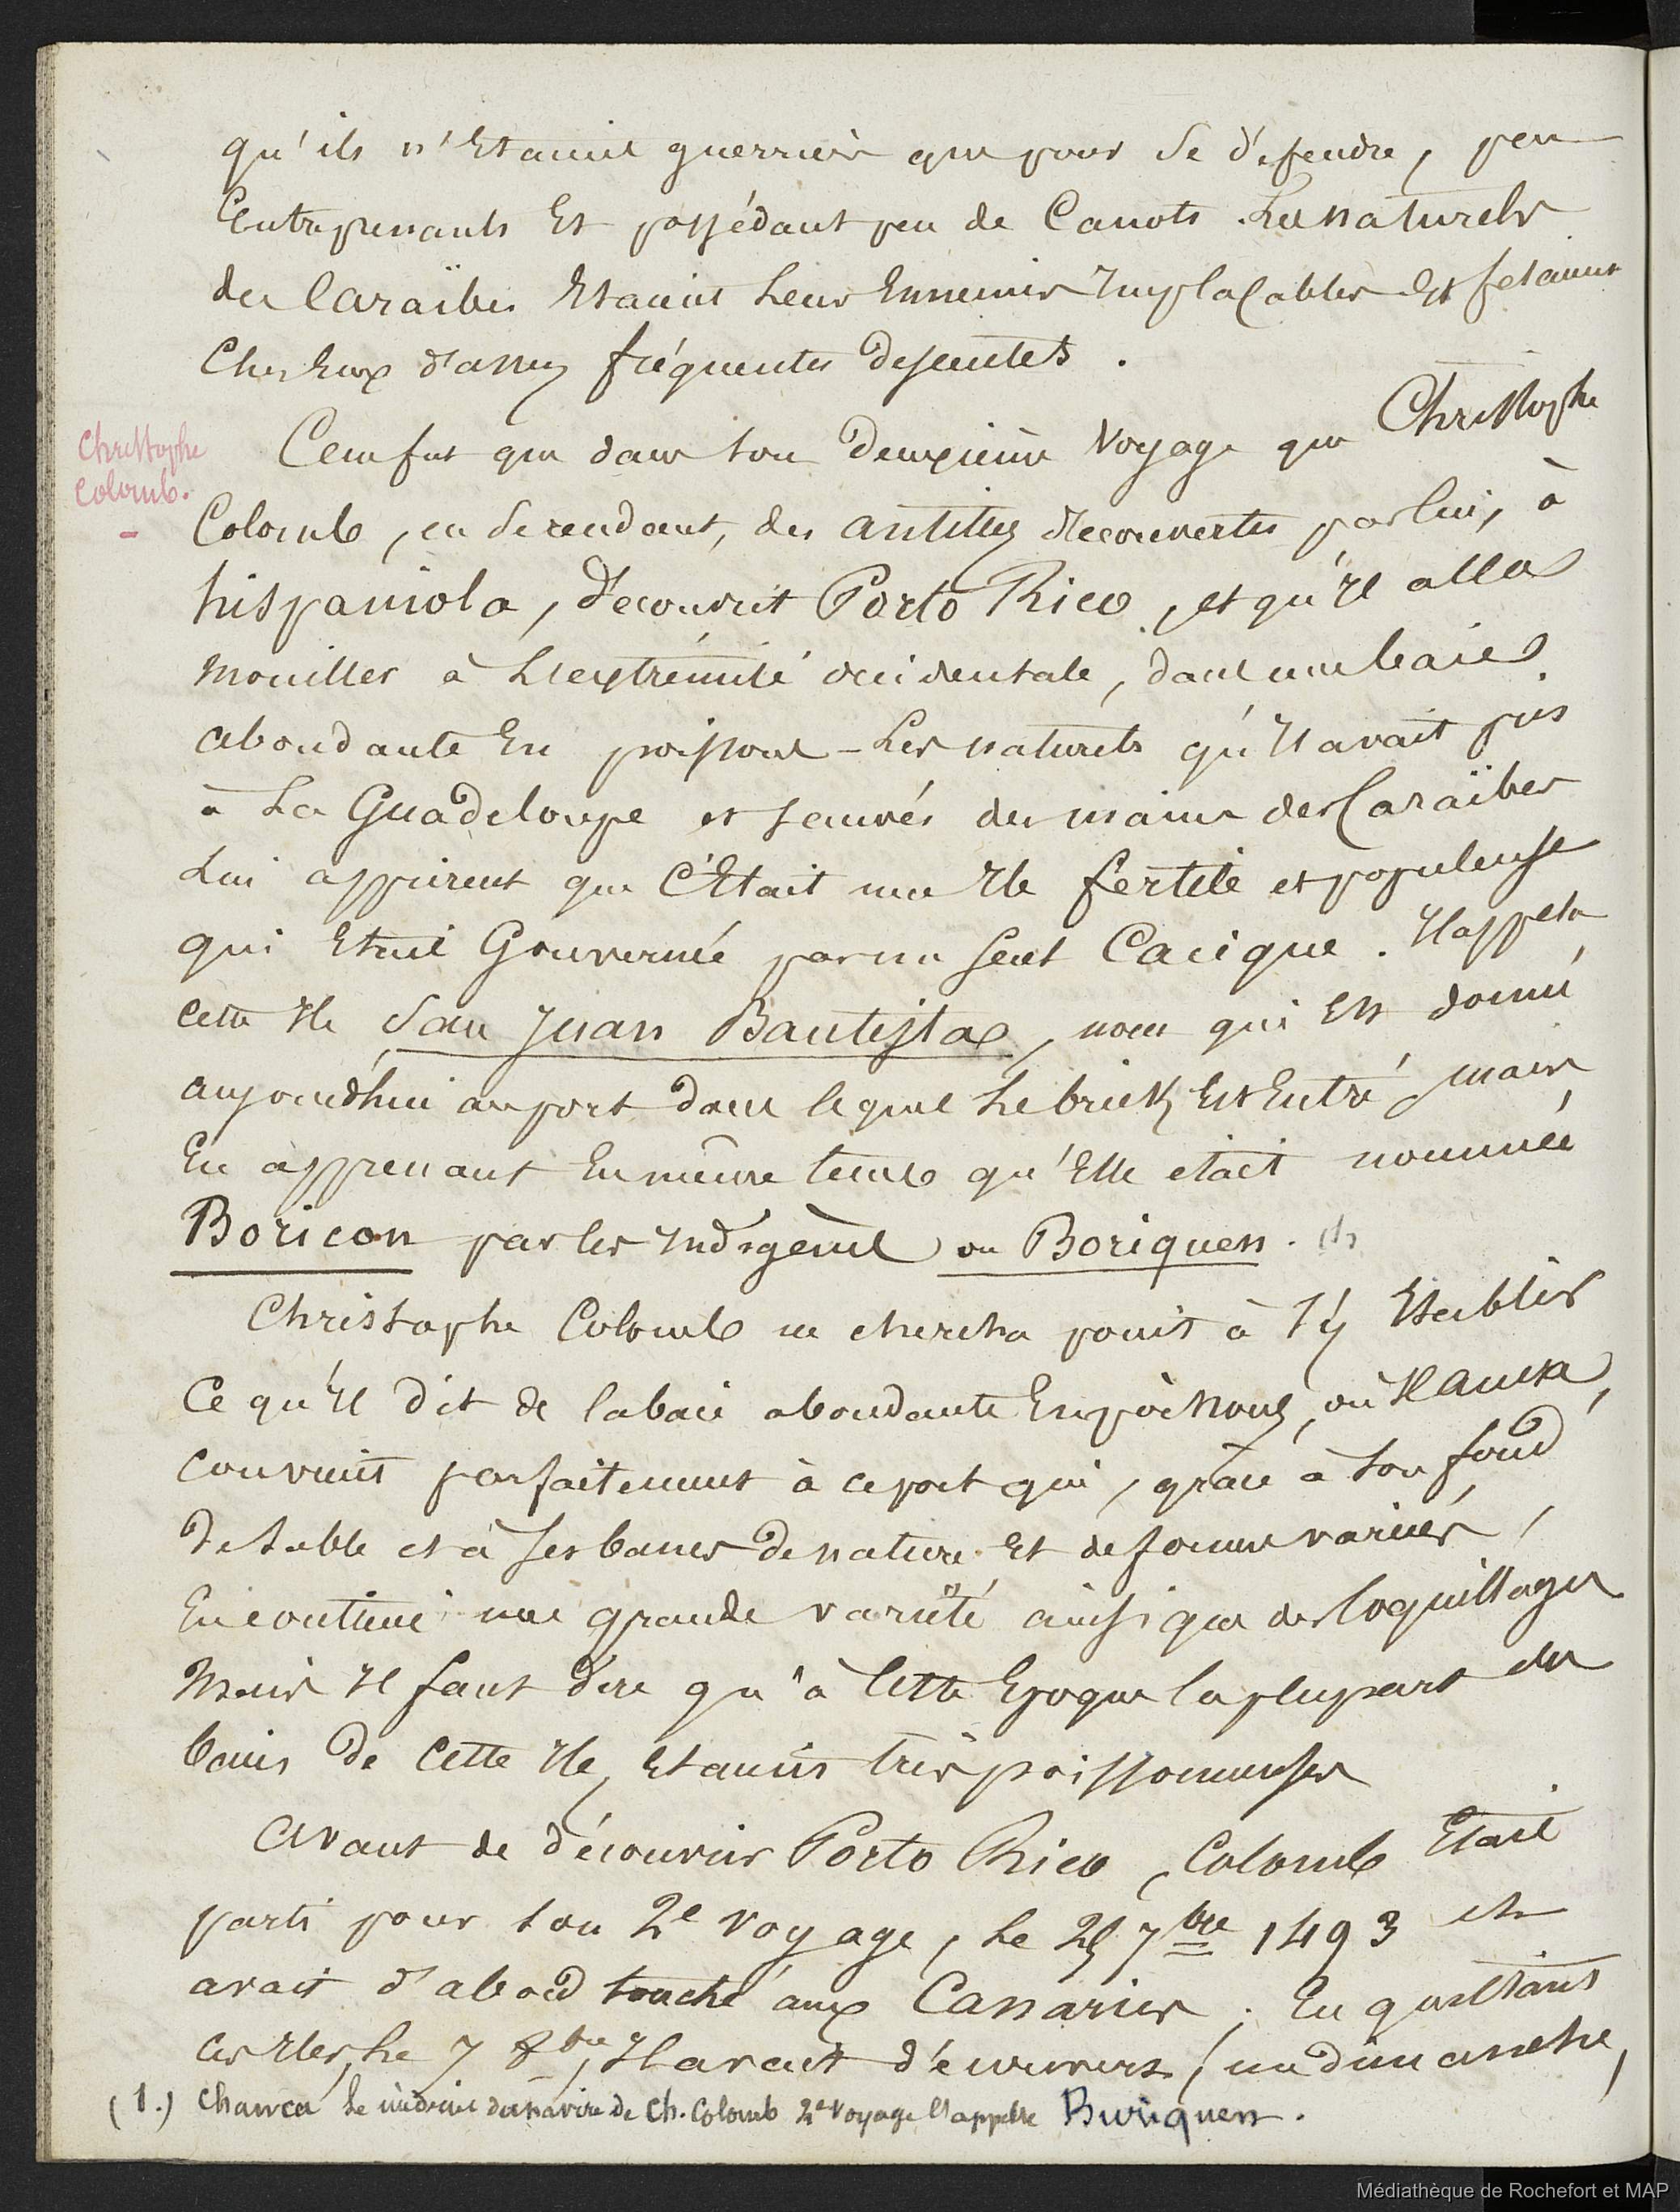 qu'ils n'Etaient guerriers que pour se défendre, peu
Entreprenants Et possédant peu de Canots. Les naturels
des Caraïbes Etaient Leurs Ennemis Implacables Et fesaient
Chez Eux d'assez fréquentes descentes.
Christophe
Colomb.
Ce ne fut que dans son deuxième Voyage que Christophe
Colomb, en se rendant, des antilles découvertes par lui, à
hispaniola, découvrit Porto Rico, et qu'Il alla
Mouiller à L'extrémité occidentale, dans une baie
abondante En poissons - Les naturels qu'Il avait pris
à La Guadeloupe et sauvés des mains des Caraïbes
Lui apprirent que C'Etait une Ile fertile et populeuse
qui Etait Gouvernée par un seul Cacique. Il appela
cette Ile San Juan Bautista, nom qui Est donné
aujourdhui au port dans lequel Le brick Est Entré mais
En apprenant En même temps qu'Elle etait nommée
Boricon par les Indigènes ou Boriquen. (1)
Christophe Colomb ne chercha point à s'y Etablir
Ce qu'Il dit de la baie abondante En poissons, où Il ancra,
convient parfaitement à ce port qui, grâce à son fond
de sable et à ses bancs de nature Et de formes variées,
En contient une grande variété ainsi que des Coquillages
Mais Il faut dire qu'à Cette Epoque la plupart des
baies de Cette Ile, Etaient très poissonneuses
Avant de découvrir Porto Rico, Colomb Etait
parti pour son 2e Voyage, Le 25 7bre 1493 et
avait d'abord touché aux Canaries; En quittant
ces Iles, Le 7 8bre, Il avait découvert, (un dimanche,
(1.) Chanca Le médecin du navire de Ch. Colomb 2e Voyage l'appelle Buriquen.
Médiathèque de Rochefort et MAP